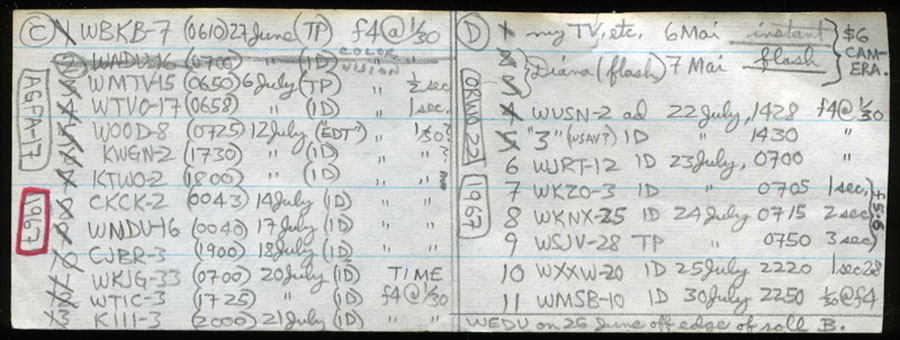 C 1 WBKB-7 (0610) 27 June (TP) f4@1/30
2 WNDU-16 (0700) " (ID) COLOR VISION "
AGFA-17
3 WMTV-15 (0650) 6 July (TP) " 1/2 sec
4 WTVO-17 (0658) " (ID) " 1 sec.
5 WOOD-8 (0725) 12 July ("EDT") " 1/30?
6 KWGN-2 (1730) " (ID) " "?
7 KTWO-2 (1800) " (ID) " "
1967
8 CKCK-2 (0043) 14 July (ID) " "
9 WNDU-16 (0040) 17 July (ID) " "
10 CJBR-3 (1900) 18 July (ID) " "
11 WKJG-33 (0700) 20 July (ID) TIME
12 WTIC-3 (1725) " (ID) f4@1/30
13 KIII-3 (2000) 21 July (ID) " "
D 1 my TV, etc. 6 Mai instant
2
3 Diana (flash) 7 Mai flash
$6 CAM-
ERA.
ORWO 22
4 WUSN-2 ad 22 July, 1428 f4@1/30
5 "3" (WSAV?) ID " 1430 "
6 WJRT-12 ID 23 July, 0700 "
1967
7 WKZO-3 ID " 0705 1 sec.
8 WKNX-25 ID 24 July 0715 2 sec
9 WSJV-28 TP " 0750 3 sec
f5.6
10 WXXW-20 ID 25 July 2220 1 sec 28
11 WMSB-10 ID 30 July 2250 1/30@f4
WEDU on 26 June off edge of roll B.